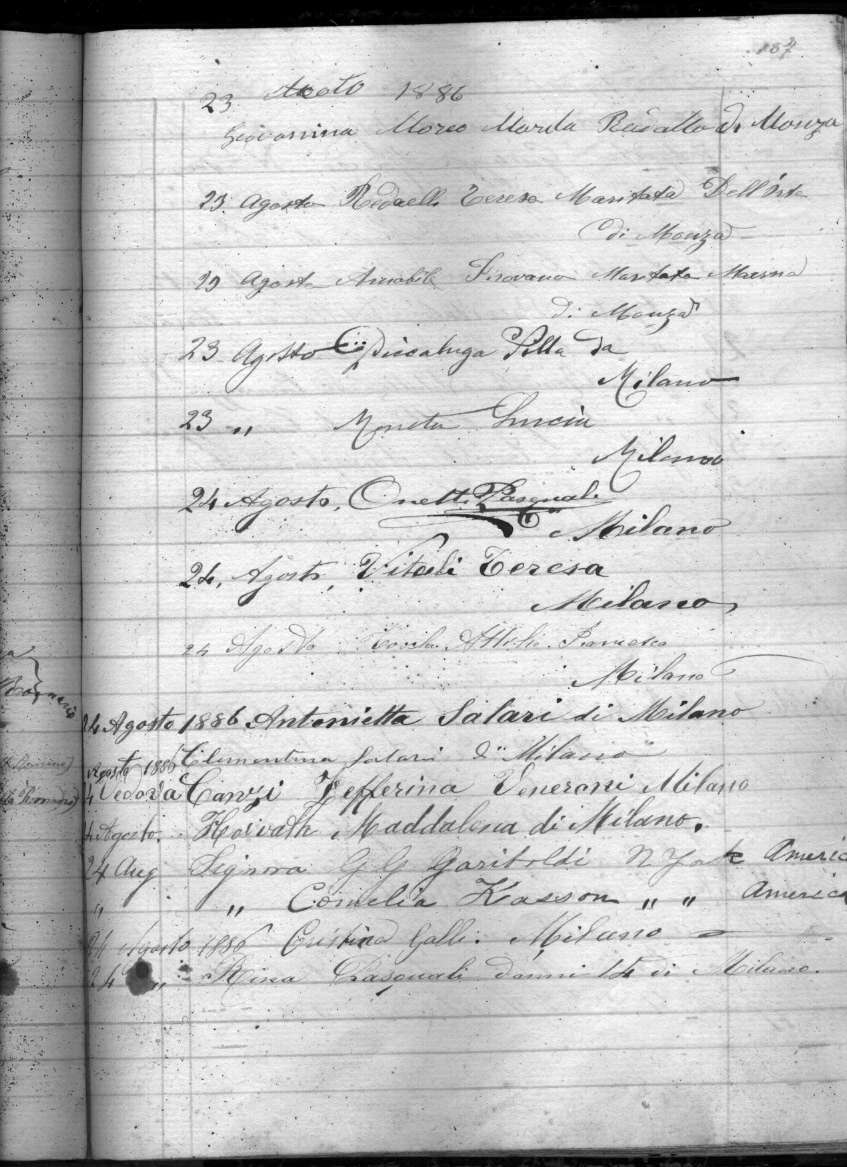 187
23 Agosto 1886
Giovannina Moreo Marita Redallo di Monza
23. Agosto Redaelli Teresa Maritata Dell'Orto
di Monza
23 Agosto Amabile Pirovano Maritata
di Monza
23 Agosto Piccaluga da
Milano
23 " Moneta Lucia
Milano
24 Agosto, Onetti Pasquale
Milano
24, Agosto, Vitali Teresa
Milano
24 Agosto Attilio Francesco
Milano
24 Agosto 1886 Antonietta Salari di Milano
Agosto 1886 Clementina Salari di Milano
24 Vedova Canzi Zefferina Veneroni Milano
24 Agosto. Horvath Maddalena di Milano.
24 Aug Signora G G Gariboldi N York America
" " Cornelia Kasson " " America
24 Agosto 1886 Cristina Galli. Milano
24 " Rina Pasquali d'anni 14 di Milano.